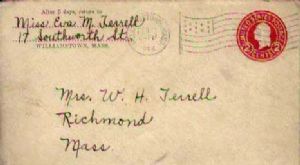 After 5 days, return to
Miss Eva M. Terrell
17 Southworth St.
WILLIAMSTOWN, MASS.
UNITED STATES POSTAGE
2 CENTS 2
Mrs. W. H. Terrell
Richmond
Mass.